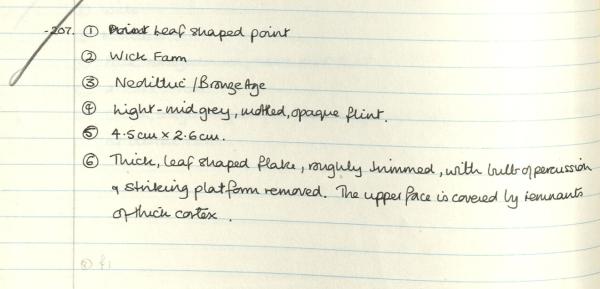 207. ① Leaf shaped point
② Wick Farm
③ Neolithic / Bronze Age
④ Light-mid grey, mottled, opaque flint.
⑤ 4.5cm × 2.6cm.
⑥ Thick, leaf shaped flake, roughly trimmed, with bulb of percussion
& striking platform removed. The upper face is covered by remnants
of thick cortex.